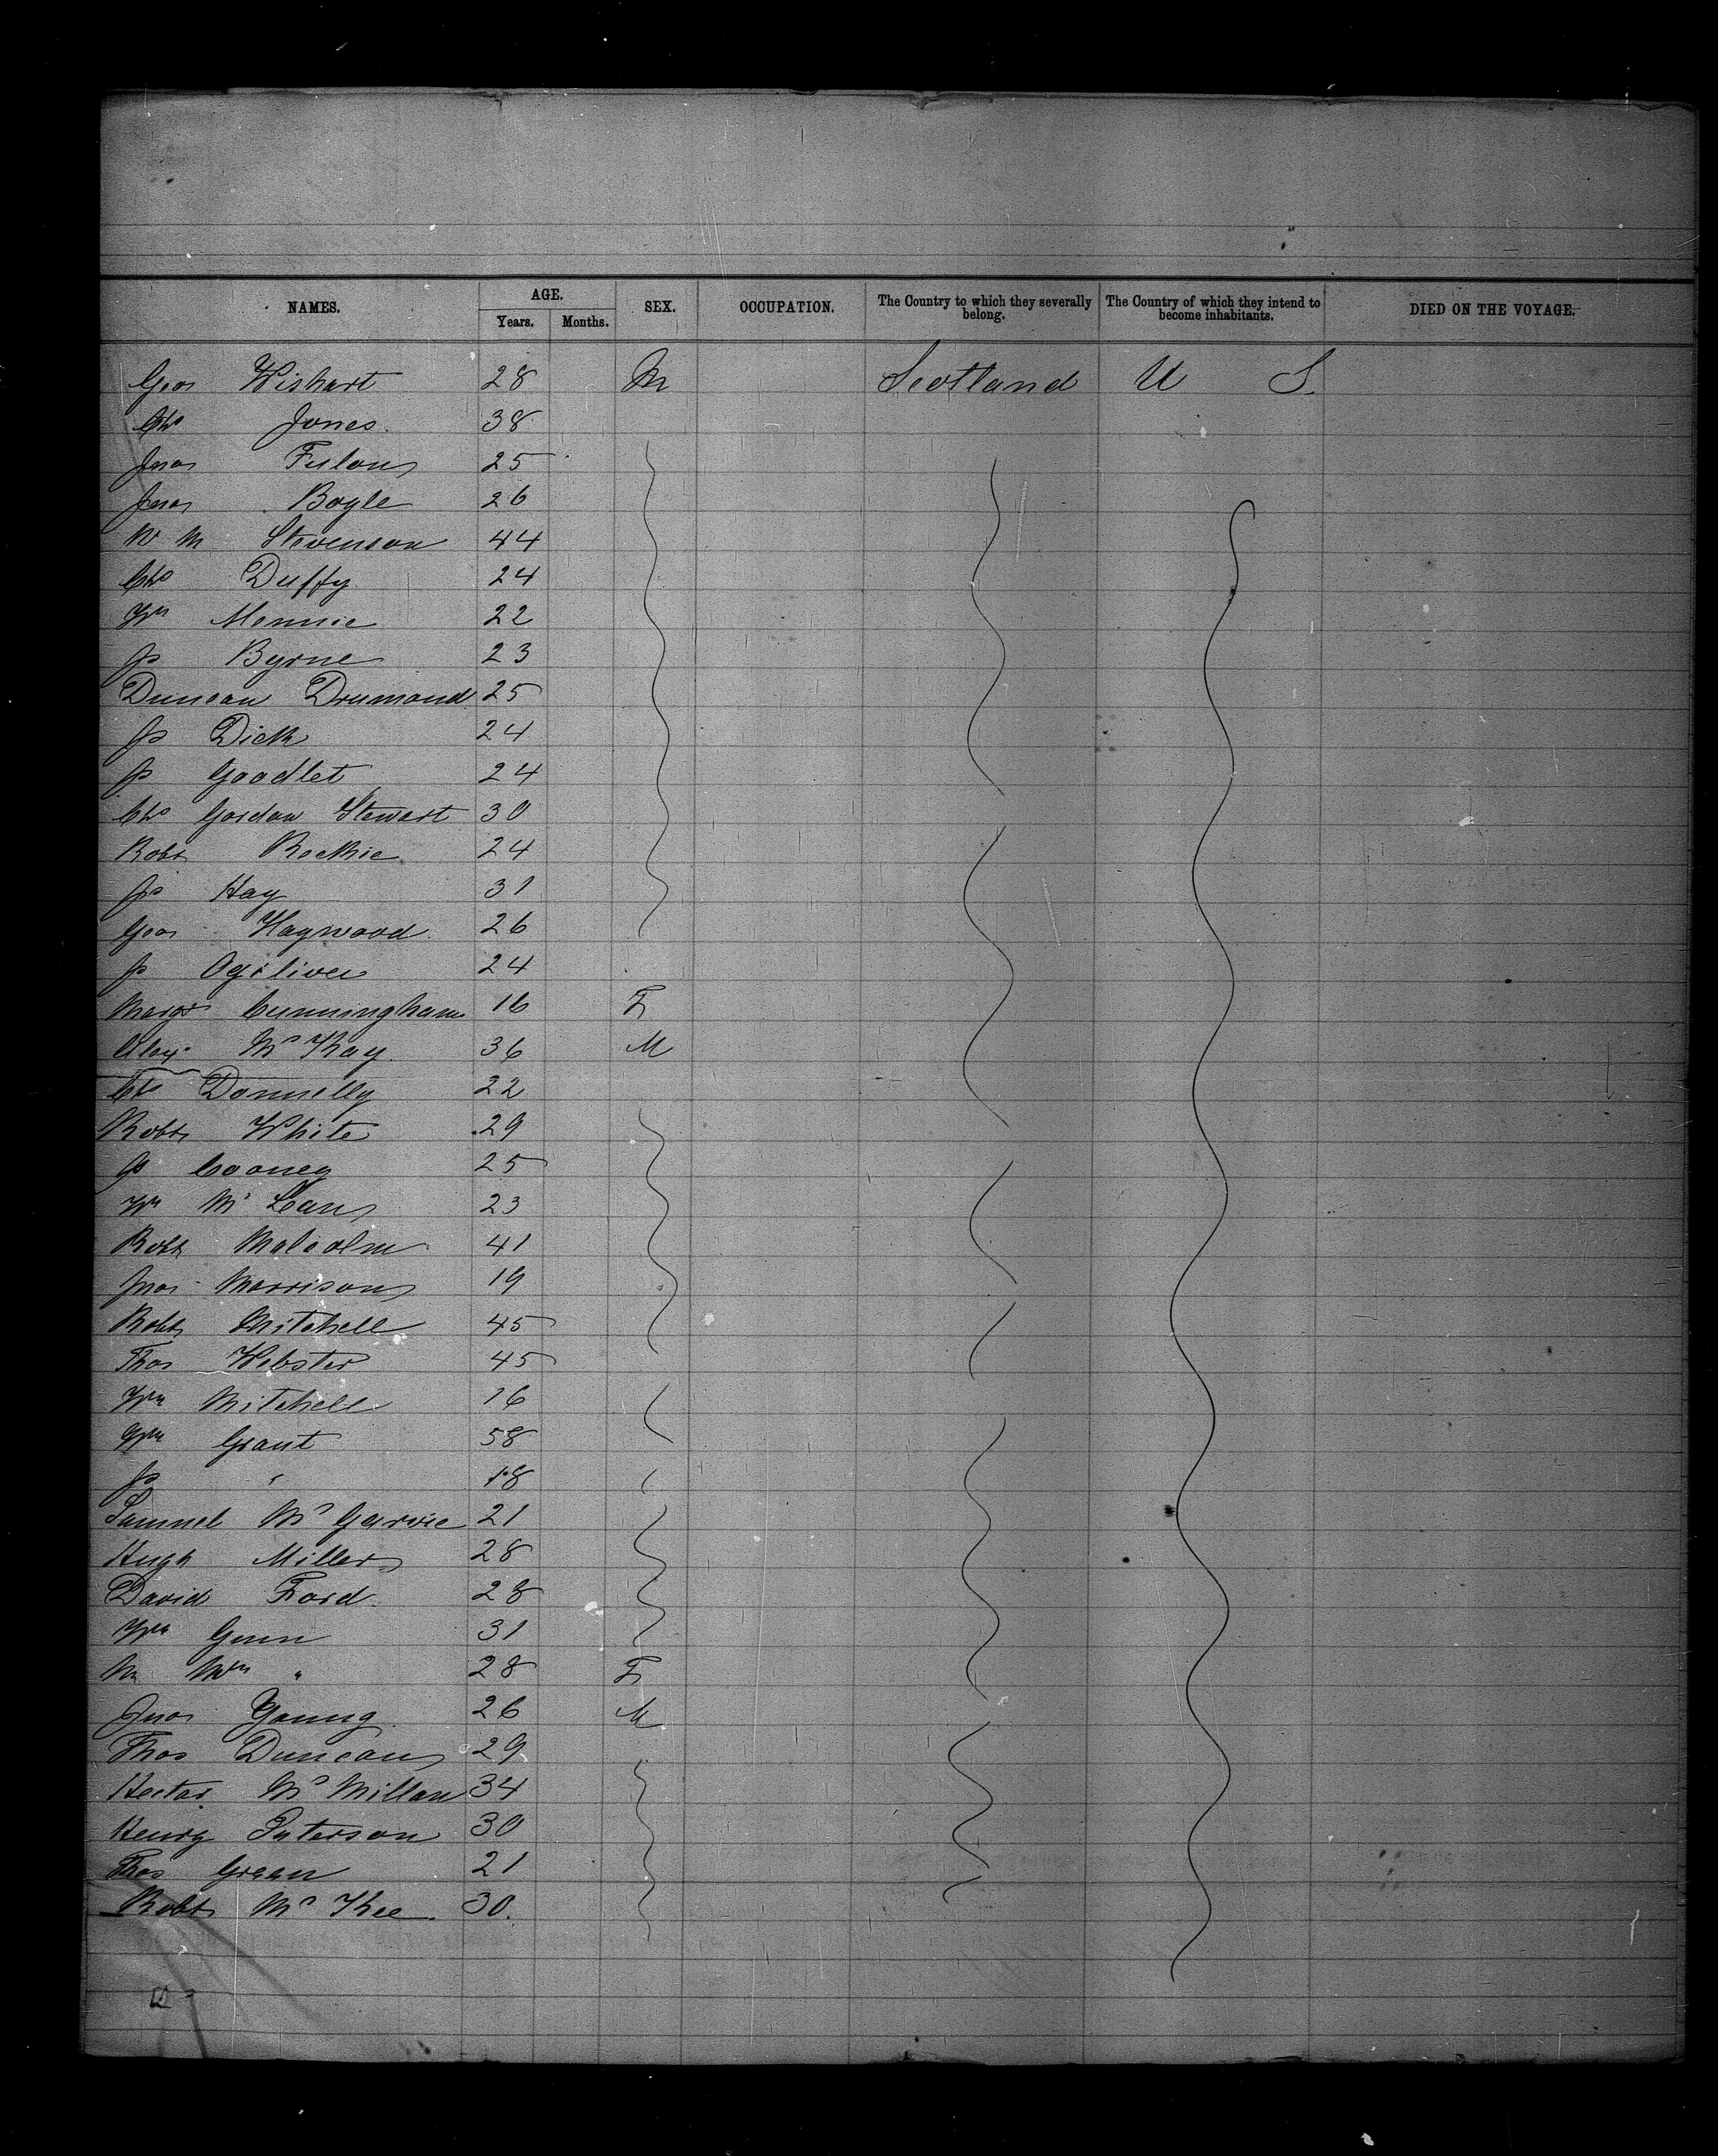 NAMES. AGE. SEX. OCCUPATION. The Country to which they severally belong. The Country of which they intend to become inhabitants. DIED ON THE VOYAGE.
Years. Months.
Geo Wishart 28 M Scotland U S.
Chs Jones. 38
Jno 25
Jno Boyle 26
W M Stevenson 44
Chs Duffy 24
Wm Mennie 22
Js Byrne 23
Duncan Drumond 25
Js Dick 24
Js Goodlet 24
Chs Gordon Stewart 30
Robt 24
Js Hay 31
Geo Haywood 26
Js Ogilivee 24
Margt Cunningham 16 F
Alex McKay 36 M
Chs Donnelly 22
Robt White 29
Js Cooney 25
Wm McLean 23
Robt Malcolm 41
Jno Morrison 19
Robt Mitchell 45
Thos Webster 45
Wm Mitchell 16
Wm Grant 58
Js " 18
Samuel McGarvie 21
Hugh Miller 28
David Ford 28
Wm Gunn 31
" 28 F
Jno Young 26 M
Thos Duncan 29
Hector McMillan 34
Henry Paterson 30
Thos Green 21
Robt McKee 30